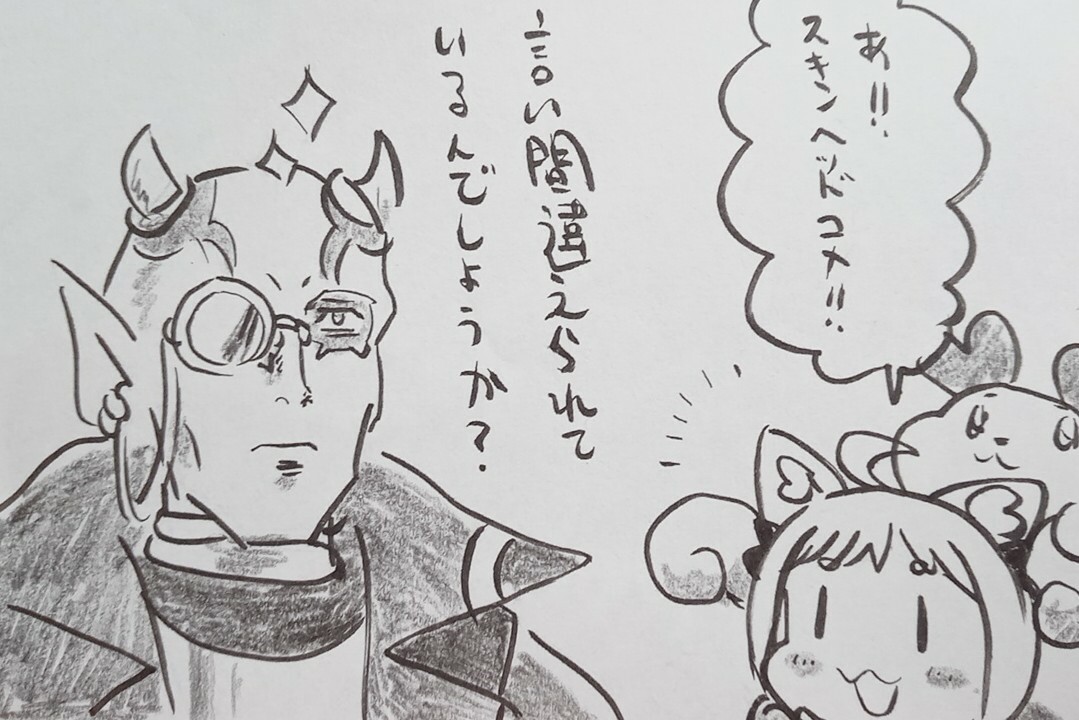 あ!!
スキンヘッドコメ!!
言い間違えられて
いるんでしょうか?